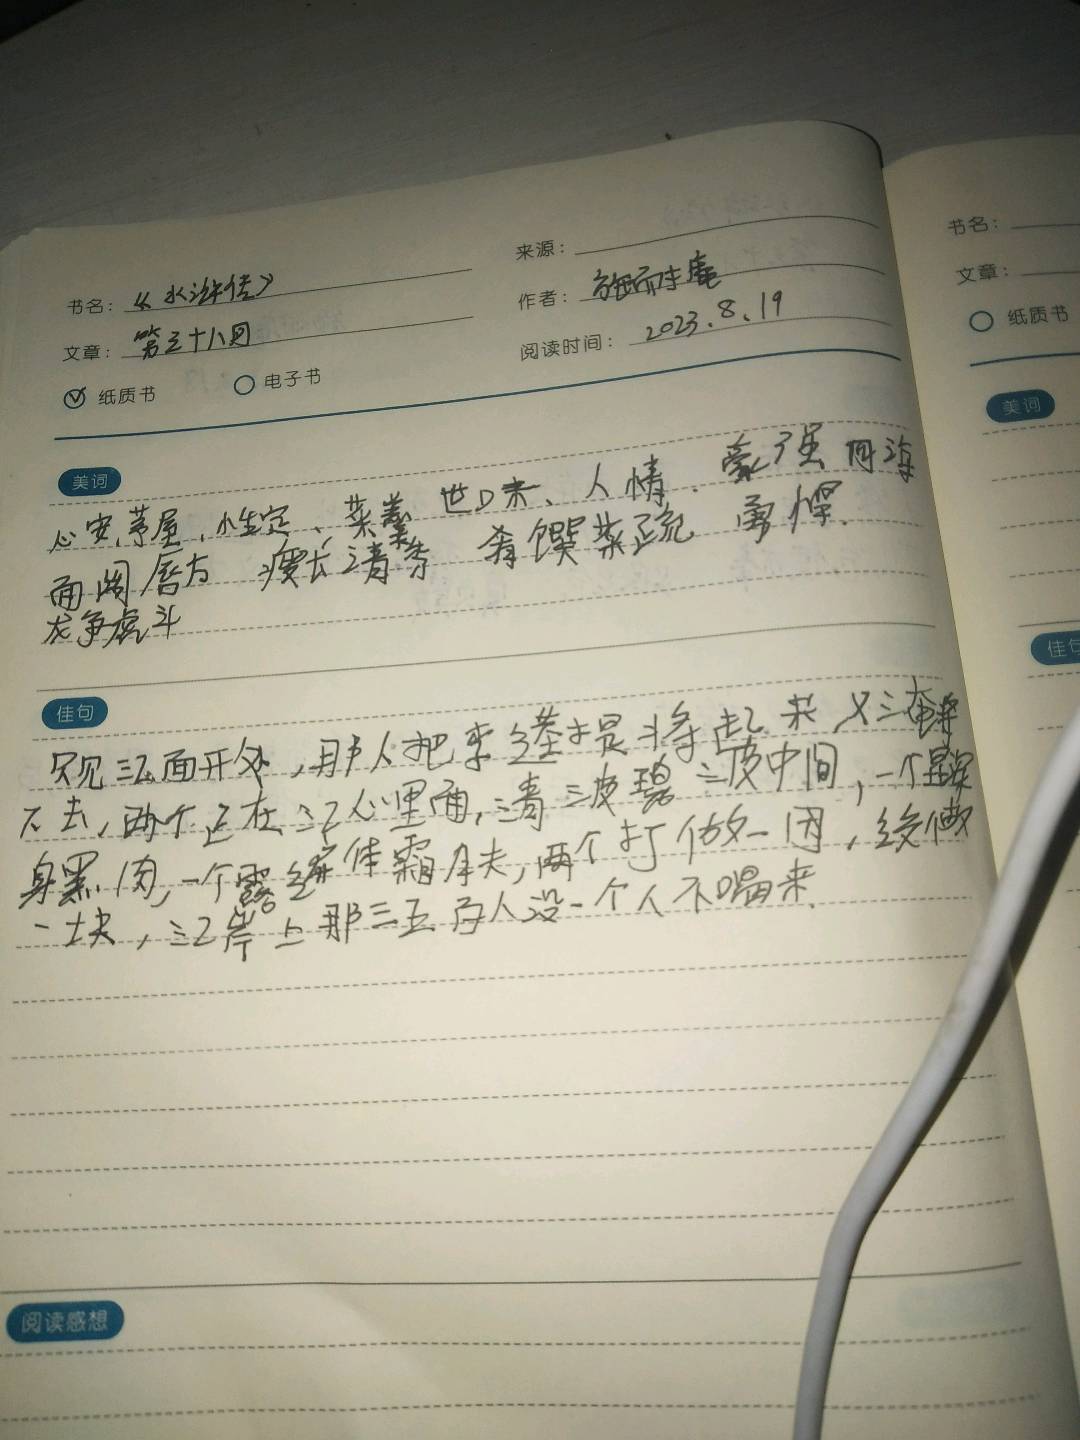 书名：《水浒传》
来源：
文章：第三十八回
作者：施耐庵
纸质书 电子书
阅读时间：2023.8.19
美词
心安、茅屋、性定、菜羹 世味、人情、豪强 四海
面阔唇方 瘦长清秀 肴馔菜蔬 勇悍.
龙争虎斗
佳句
只见江面开处，那人把李逵提将起来又淹将
下去，两个正在江心里面，清波碧波中间，一个显浑
身黑肉，一个露遍体霜肤，两个打做一团，绞做
一块，江岸上那三五百人没一个人不喝采.
阅读感想
书名：
文章：
纸质书
美词
佳句